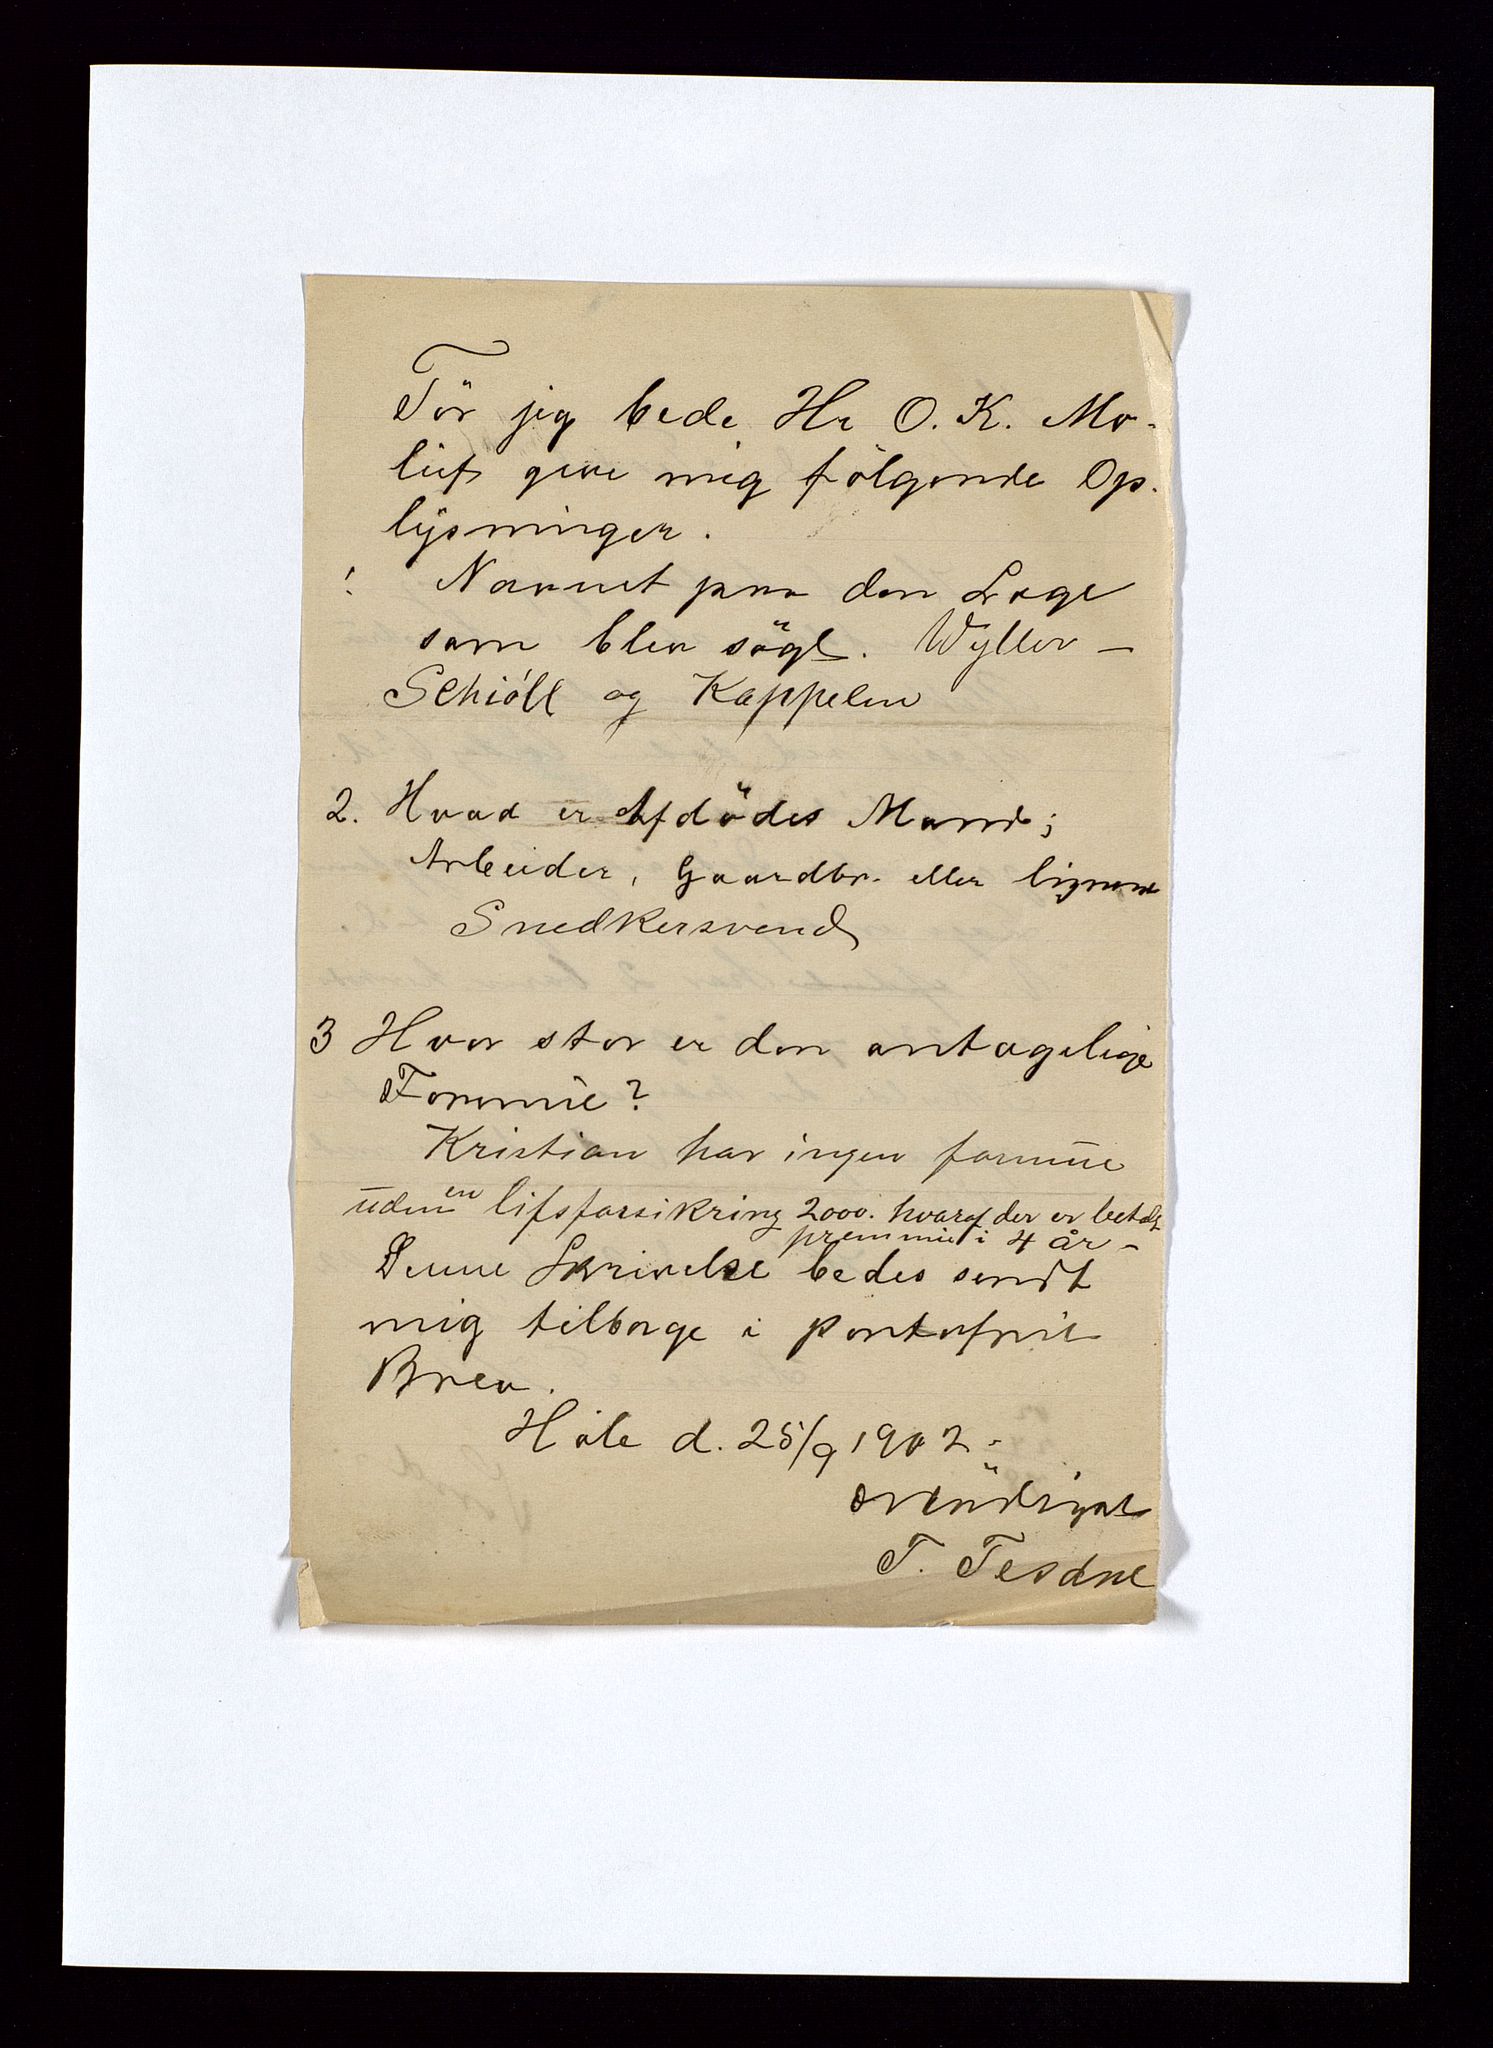 Tör jeg bede Hr O. K. Mo-
luf give mig fölgende Op-
lysninger.
1 Navnet paa den Læge
som blev sögt. Wyller –
Schiöll og Kappelen
2. Hvad er Afdödes Mand;
Arbeider, Gaardbr. eller lignende
Snedkersvend
3 Hvor stor er den antagelige
Formue?
Kristian har ingen formue
uden en lifsforsikring 2000. hvoraf der er betalt
premmie i 4 år –
Denne Skrivelse bedes sendt
mig tilbage i portofrit
Brev.
Hole d. 25/9 1902 –
Ærbödigst
T.